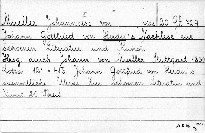 Mueller Johannes von
Johann Gottfried von Herder's Nachlese zur
schoenen Literatur und Kunst.
Hrsg. durch Johann von Mueller Stuttgart 1830
Cotta 12° Johann Gottfried von Herder's
saemmtliche Werke zur schoenen Literatur und
Kunst 20 Theil